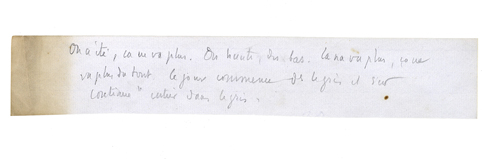 On a été, ça ne va plus. Du haut, du bas. Ça ne va plus, ça ne
va plus du tout. le jour commence ds le gris et
continue entier dans le gris.